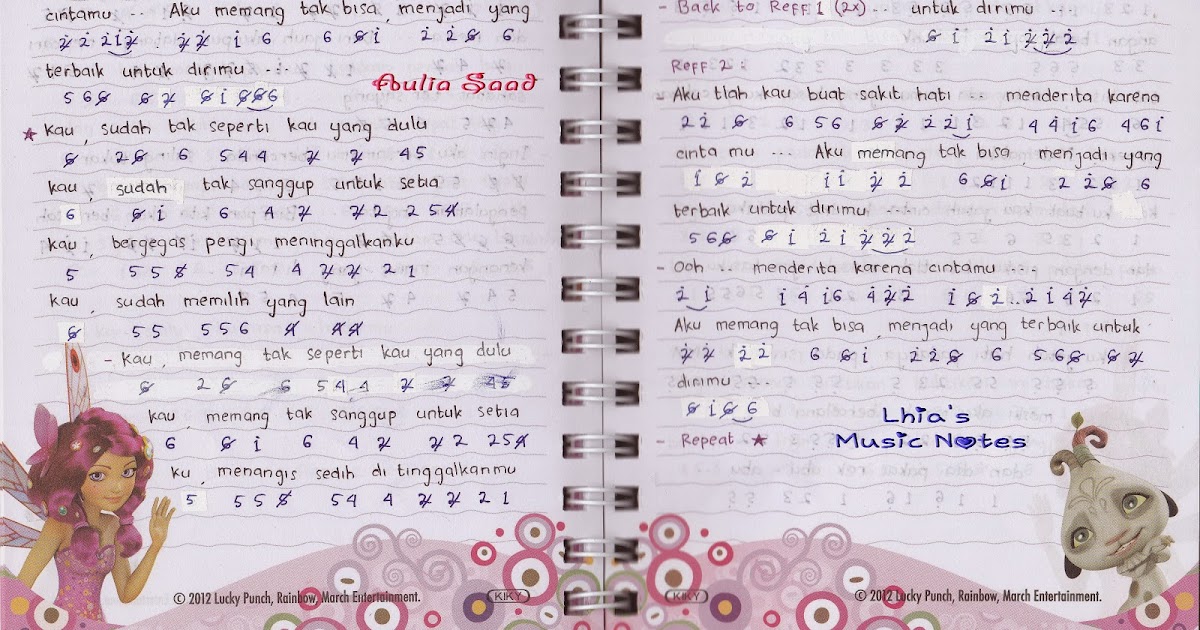 cintamu ... Aku memang tak bisa, menjadi yang
2 2 2 1 2 2 2 1 6 6 6 1 2 2 6 6
terbaik untuk dirimu ....
5 6 6 6 7 6 1 6 6 6
Aulia Saad
★ Kau, sudah tak seperti kau yang dulu
6 2 6 6 5 4 4 2 2 4 5
kau, sudah tak sanggup untuk setia
6 6 1 6 4 2 2 2 2 5 4
kau, bergegas pergi meninggalkanku
5 5 5 5 5 4 4 2 2 2 1
kau, sudah memilih yang lain
6 5 5 5 5 6 4 4 4
- Kau, memang tak seperti kau yang dulu
6 2 6 6 5 4 4 2 2 4 5
kau, memang tak sanggup untuk setia
6 6 1 6 4 2 2 2 2 5 4
ku, menangis sedih di tinggalkanmu
5 5 5 5 5 4 4 2 2 2 1
© 2012 Lucky Punch, Rainbow, March Entertainment.
KIKY
- Back to Reff 1 (2x) ... untuk dirimu ...
6 1 2 1 2 2 2
Reff 2 :
- Aku tlah kau buat sakit hati ... menderita karena
2 2 6 6 5 6 1 6 2 2 2 1 4 4 1 6 4 6 1
cinta mu ... Aku memang tak bisa, menjadi yang
1 6 2 1 1 2 2 6 6 1 2 2 6 6
terbaik untuk dirimu ...
5 6 6 6 1 2 1 2 2 2
- Ooh ... menderita karena cintamu ....
2 1 1 4 1 6 4 2 2 1 6 2 .. 2 1 4 2
Aku memang tak bisa, menjadi yang terbaik untuk
2 2 2 2 6 6 1 2 2 6 6 5 6 6 6 7
dirimu ...
6 1 6 6
- Repeat ★
Lhia's
Music Notes
KIKY
© 2012 Lucky Punch, Rainbow, March Entertainment.